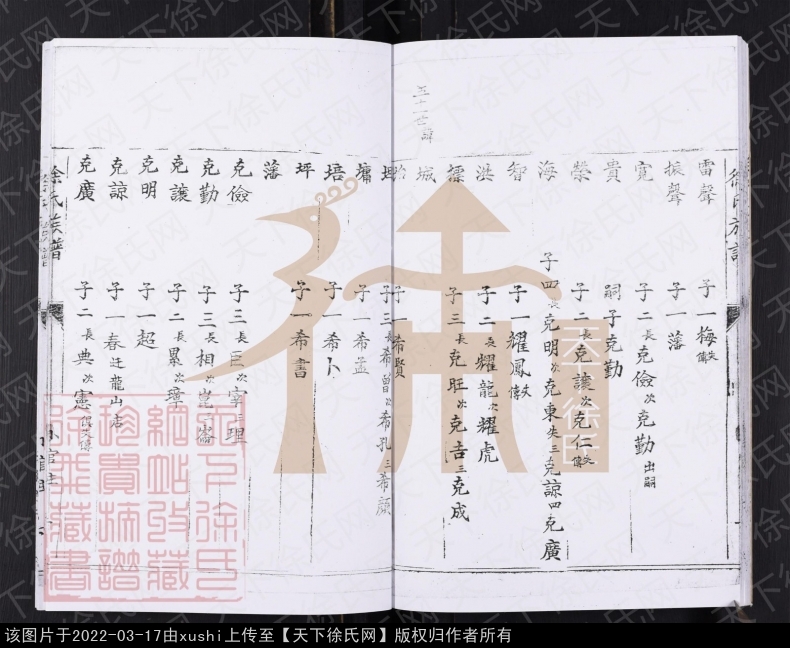 徐氏族譜
五十一世諱
雷聲 子一梅失傳
振聲 子一藩
寬 子二長克儉次克勤出嗣
貴 嗣子克勤
榮 子二長克讓次克仁失傳
海 子四長克明次克東失三克諒四克廣
智 子一耀鳳失傳
洪 子二長耀龍次耀虎
標 子三長克旺次克浩三克成
城
子一希賢
坤 子三長希曾次希孔三希顏
墉 子一希孟
培 子一希卜
坪 子一希書
藩
克儉 子三長臣次宰三理
克勤 子三長相次崑三崙
克讓 子二長累次璋
克明 子一超
克諒 子一春迁龍山店
克廣 子二長典次憲俱失傳
徐氏族譜
天下徐氏
天下徐氏網站收藏珍貴損譜徐飛藏書
天下徐氏网
该图片于2022-03-17由xushi上传至【天下徐氏网】版权归作者所有